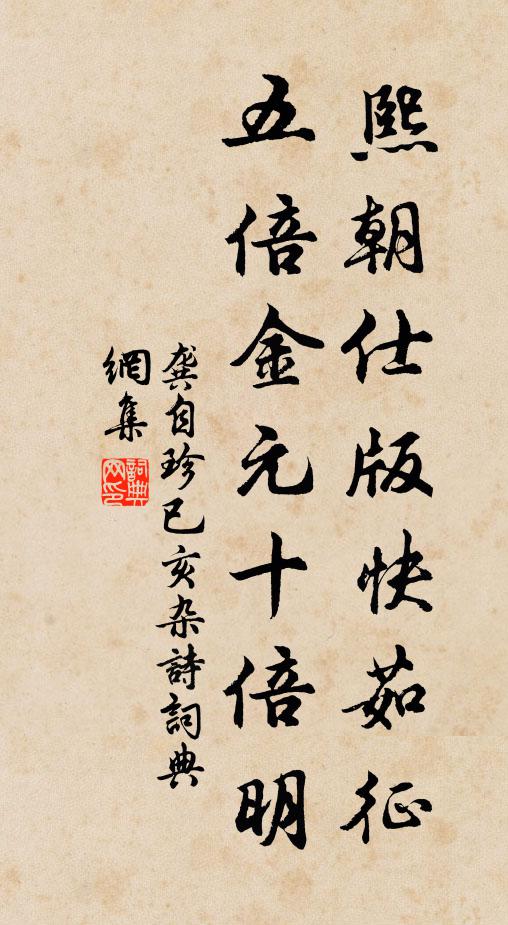 熙朝仕版快茹征
五倍金元十倍明
龔自珍已亥杂詩詞典
網集
詞典
网印